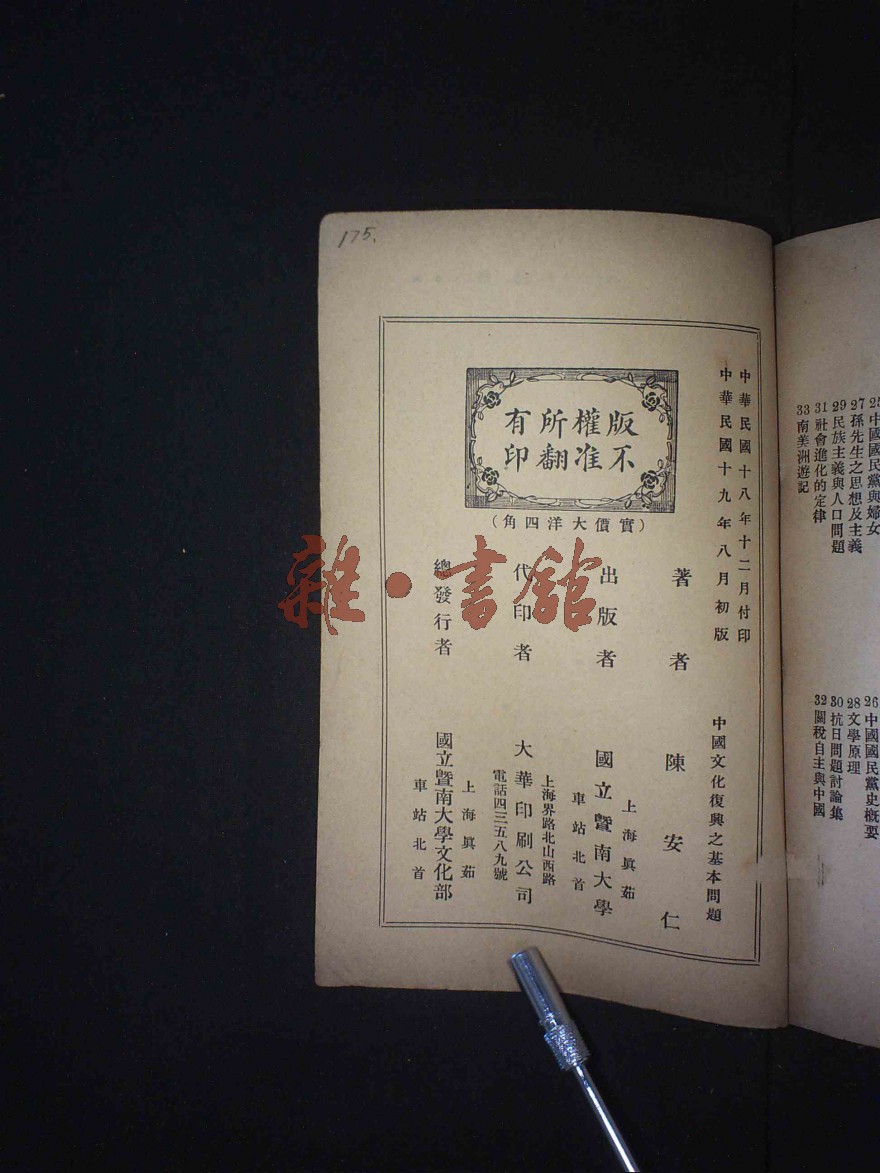 25中國國民黨與婦女
27孫先生之思想及主義
29民族主義與人口問題
31社會進化的定律
33南美洲遊記
26中國國民黨史概要
28文學原理
30抗日問題討論集
32關稅自主與中國
175.
中華民國十八年十二月付印
中華民國十九年八月初版
中國文化復興之基本問題
版權所有
不准翻印
（實價大洋四角）
著者 陳安仁
出版者 國立暨南大學
上海眞茹
車站北首
代印者 大華印刷公司
上海界路北山西路
電話四三五八九號
總發行者 國立暨南大學文化部
上海眞茹
車站北首
雜·書館